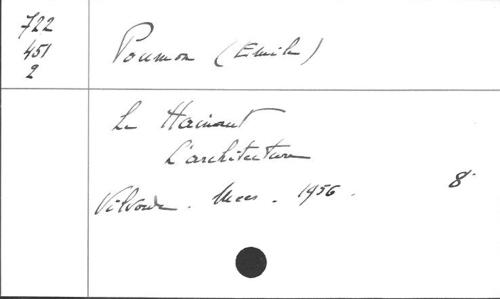 722
451
2
Poumon (Emile)
Le Hainaut
L'architecture
Vilvorde. Mees. 1956. 8°